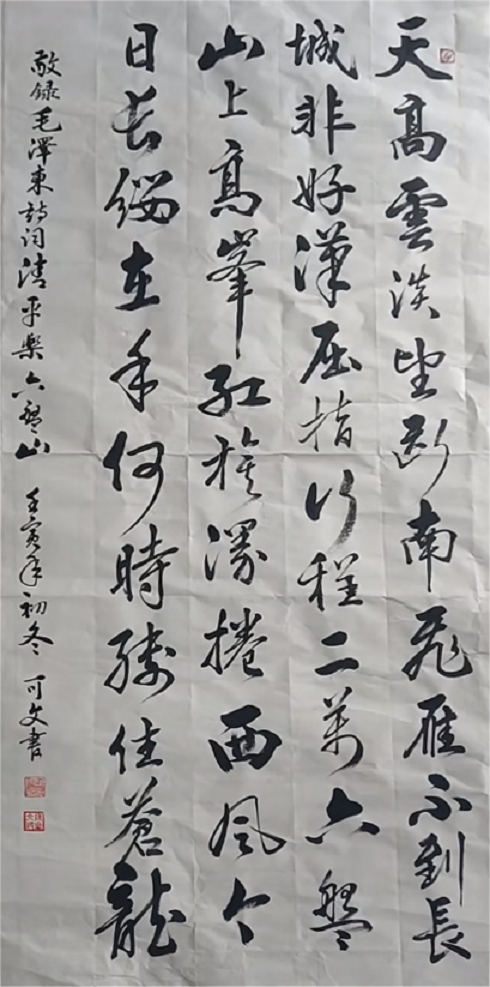 天高雲淡望斷南飛雁不到長
城非好漢屈指行程二萬六盤
山上高峯紅旗漫捲西風今
日長纓在手何時縛住蒼龍
敬録毛澤東詩詞清平樂六盤山 壬寅年初冬 可文書